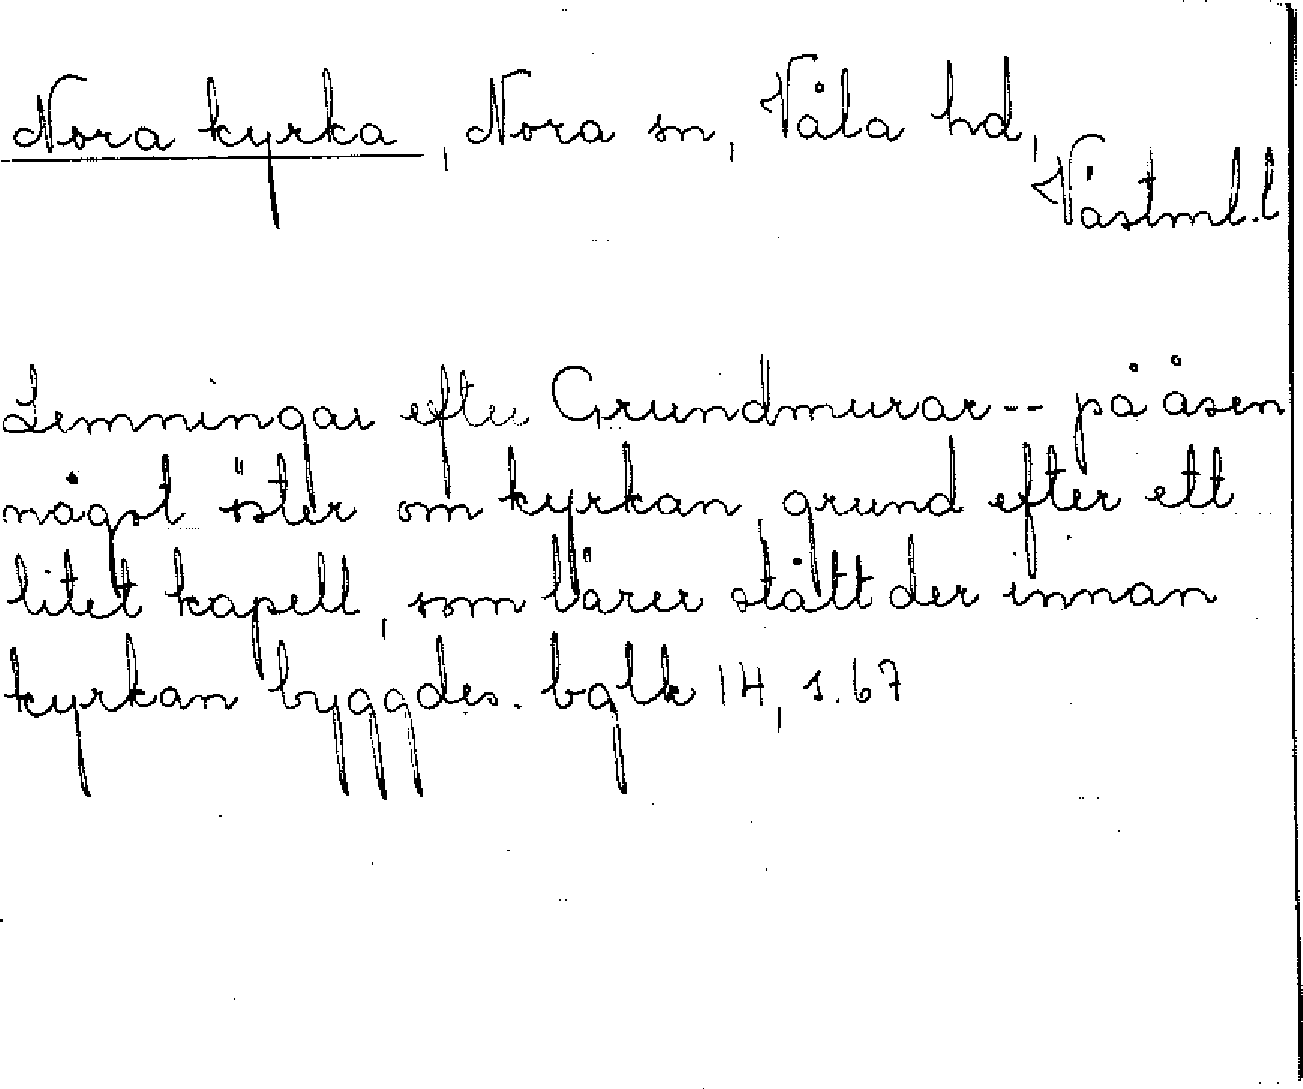 Nora kyrka, Nora sn, Våla hd,
Västml. l
Lemningar efter Grundmurar -- på åsen
något öster om kyrkan, grund efter ett
litet kapell, som lärer stått der innan
kyrkan byggdes. bglk 14, s. 67